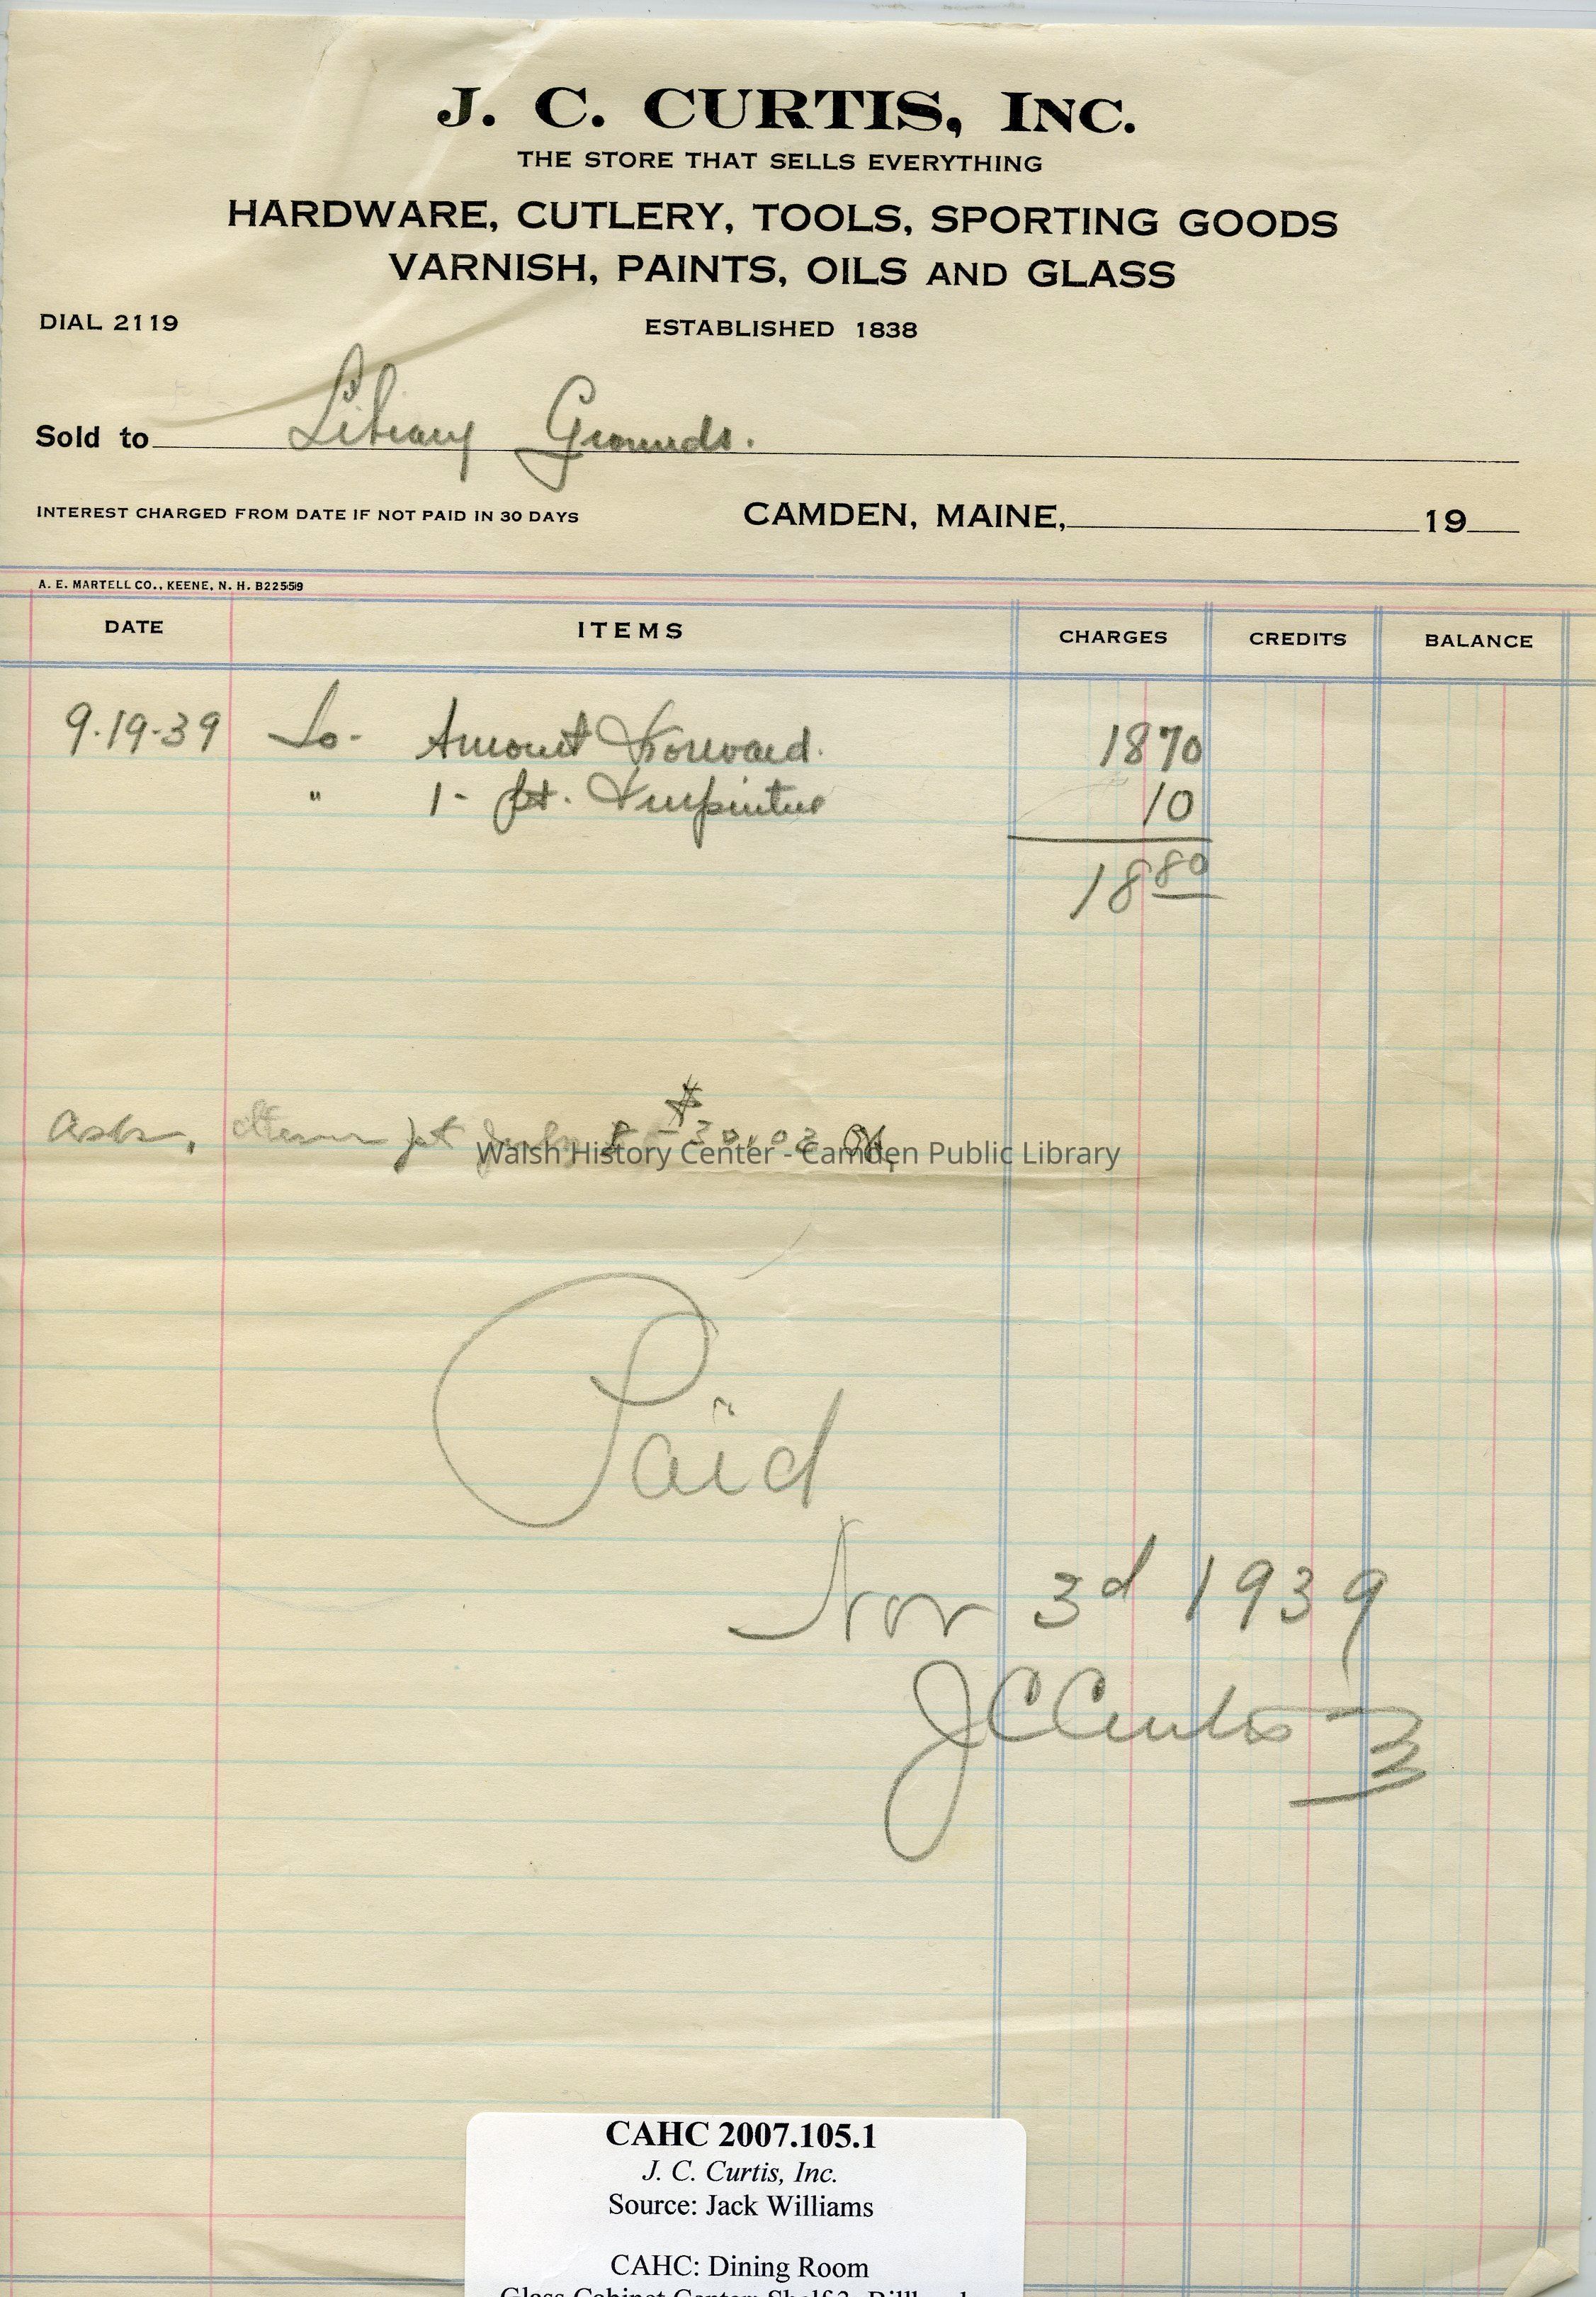 J. C. CURTIS, INC.
THE STORE THAT SELLS EVERYTHING
HARDWARE, CUTLERY, TOOLS, SPORTING GOODS
VARNISH, PAINTS, OILS AND GLASS
DIAL 2119 ESTABLISHED 1838
Sold to Library Grounds.
INTEREST CHARGED FROM DATE IF NOT PAID IN 30 DAYS CAMDEN, MAINE, 19
A. E. MARTELL CO., KEENE, N. H. B22559
DATE ITEMS CHARGES CREDITS BALANCE
9-19-39 To- Amount Forward. 1870
" 1- pt. Turpintine 10
18 80
$
Walsh History Center - Camden Public Library
Paid
Nov 3d 1939
J C Curtis
CAHC 2007.105.1
J. C. Curtis, Inc.
Source: Jack Williams
CAHC: Dining Room